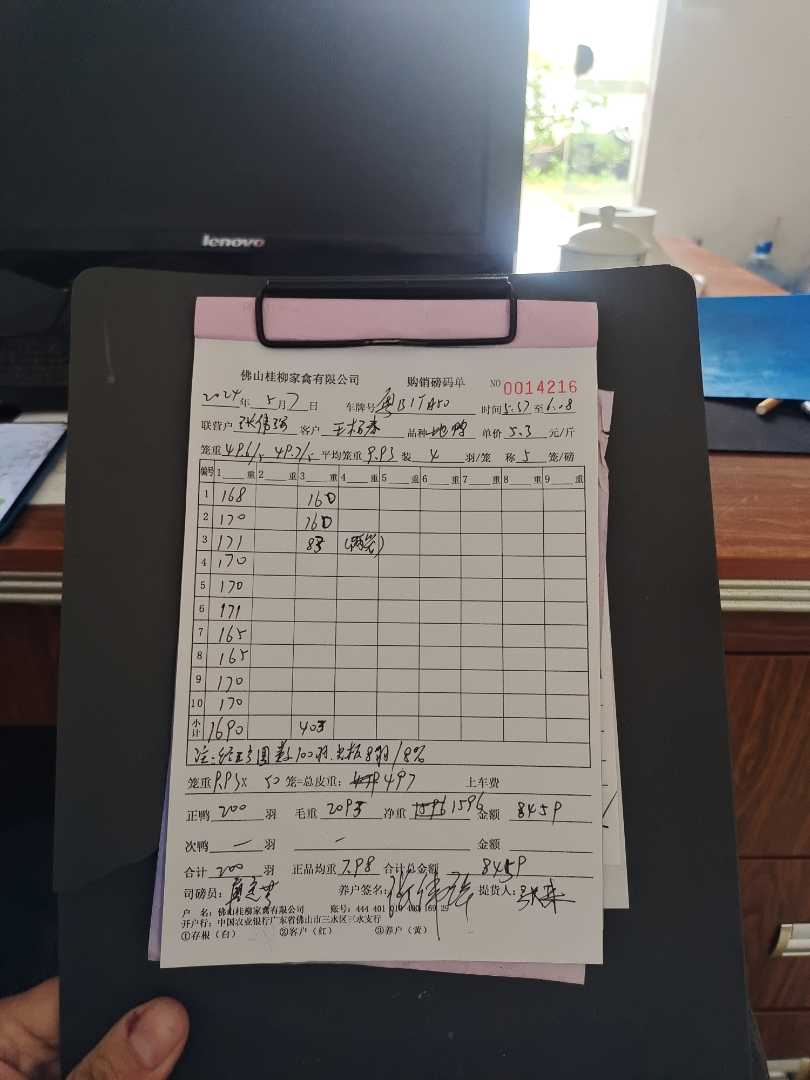 lenovo
佛山桂柳家禽有限公司 购销磅码单 NO 0014216
2024年 5月7日 车牌号 粤B1TA50 时间5.57至6.08
联营户 张伟强 客户 王 品种 地鸭 单价 5.3 元/斤
笼重 49.6/5 49.7/5 平均笼重 9.93 装 4 羽/笼 称 5 笼/磅
编号 1 重 2 重 3 重 4 重 5 重 6 重 7 重 8 重 9 重
1 168 160
2 170 160
3 171 83 (两笼)
4 170
5 170
6 171
7 165
8 165
9 170
10 170
小计 1690 403
注: 100羽 8羽/8%
笼重 9.93× 50 笼=总皮重: 497 上车费
正鸭 200 羽 毛重 2093 净重 1596 1596 金额 8459
次鸭 — 羽 — 金额
合计 200 羽 正品均重 7.98 合计总金额 8459
司磅员: 养户签名: 张伟强 提货人:
户 名: 佛山桂柳家禽有限公司 账号: 444 401 010 400 169 29
开户行: 中国农业银行广东省佛山市三水区三水支行
①存根(白) ②客户(红) ③养户(黄)